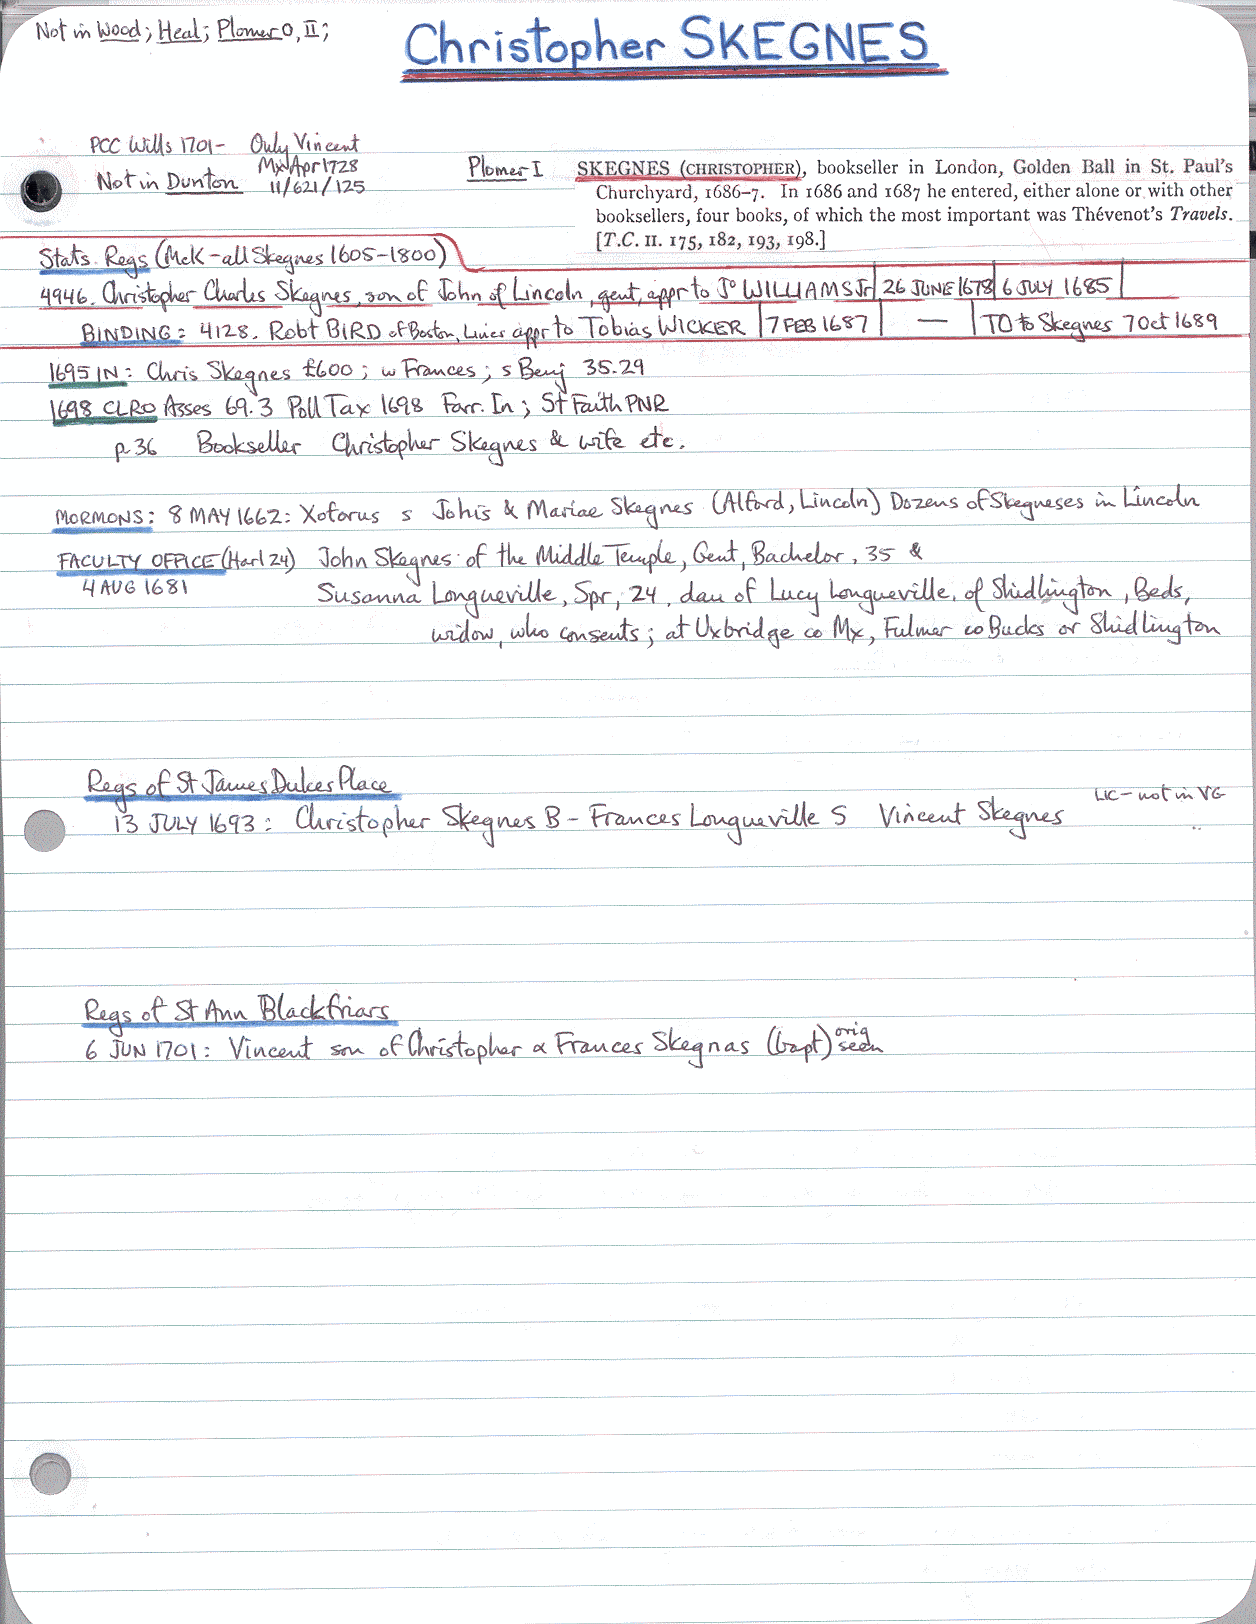 Not in Wood; Heal; Plomer O, II;
Christopher SKEGNES
PCC Wills 1701- Only Vincent
Mx Apr 1728
Not in Dunton 11/621/125
Plomer I SKEGNES (CHRISTOPHER), bookseller in London, Golden Ball in St. Paul's
Churchyard, 1686–7. In 1686 and 1687 he entered, either alone or with other
booksellers, four books, of which the most important was Thévenot's Travels.
[T.C. II. 175, 182, 193, 198.]
Stats. Regs (McK - all Skegnes 1605-1800)
4946. Christopher Charles Skegnes, son of John of Lincoln, gent, appr to Jo WILLIAMS Jr 26 JUNE 1678 6 JULY 1685
BINDING: 4128. Robt BIRD of Boston, Lincs appr to Tobias WICKER 7 FEB 1687 — TO to Skegnes 7 Oct 1689
1695 IN: Chris Skegnes £600; w Frances; s Benj 35.29
1698 CLRO Asses 69.3 Poll Tax 1698 Farr. In; St Faith PNR
p.36 Bookseller Christopher Skegnes & wife etc.
MORMONS: 8 MAY 1662: Xoforus s Johis & Mariae Skegnes (Alford, Lincoln) Dozens of Skegneses in Lincoln
FACULTY OFFICE (Harl 24) John Skegnes of the Middle Temple, Gent, Bachelor, 35 &
4 AUG 1681 Susanna Longueville, Spr, 24, dau of Lucy Longueville, of Shidlington, Beds,
widow, who consents; at Uxbridge co Mx, Fulmer co Bucks or Shidlington
Regs of St James Dukes Place
LIC - not in VG
13 JULY 1693: Christopher Skegnes B - Frances Longueville S Vincent Skegnes
Regs of St Ann Blackfriars
6 JUN 1701: Vincent son of Christopher & Frances Skegnas (bapt) orig seen